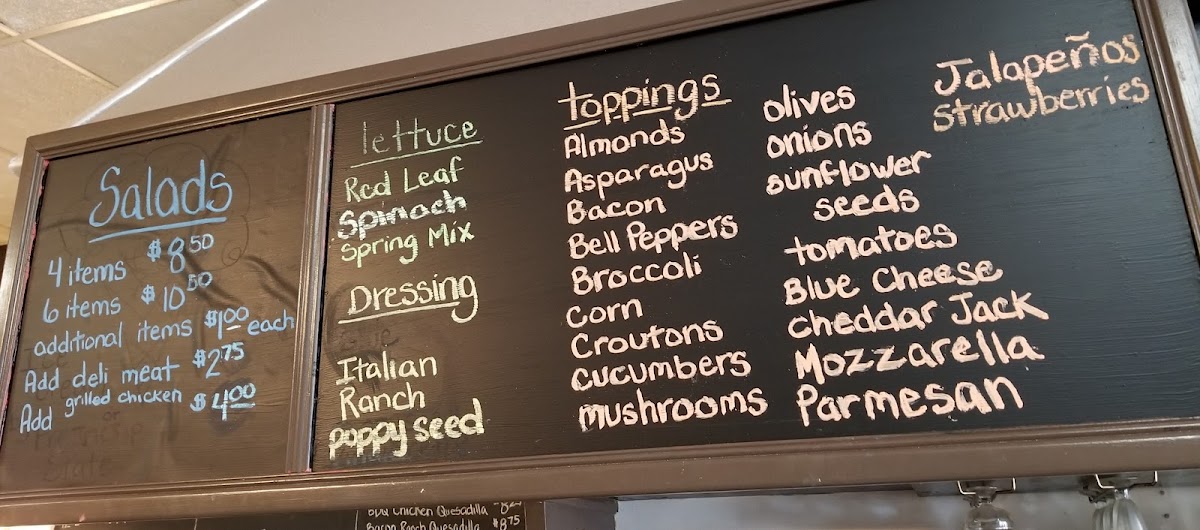 Salads
4 items $8.50
6 items $10.50
additional items $1.00 each
Add deli meat $2.75
Add grilled chicken $4.00
lettuce
Red Leaf
Spinach
Spring Mix
Dressing
Italian
Ranch
poppy seed
toppings
Almonds
Asparagus
Bacon
Bell Peppers
Broccoli
corn
Croutons
cucumbers
mushrooms
olives
onions
sunflower
seeds
tomatoes
Blue Cheese
cheddar Jack
Mozzarella
Parmesan
Jalapeños
strawberries
BBQ Chicken Quesadilla
Bacon Ranch Quesadilla $8.75